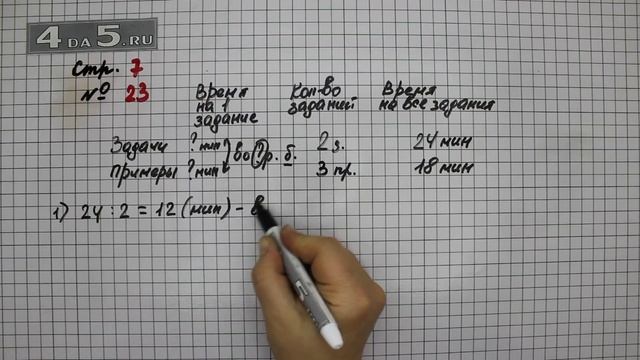 4DA5.RU
Стр. 7
№ 23
Время на 1 задание
Кол-во заданий
Время на все задания
Задачи ? мин } во ? р. б. 2 з. 24 мин
Примеры ? мин 3 пр. 18 мин
1) 24 : 2 = 12 (мин) - в